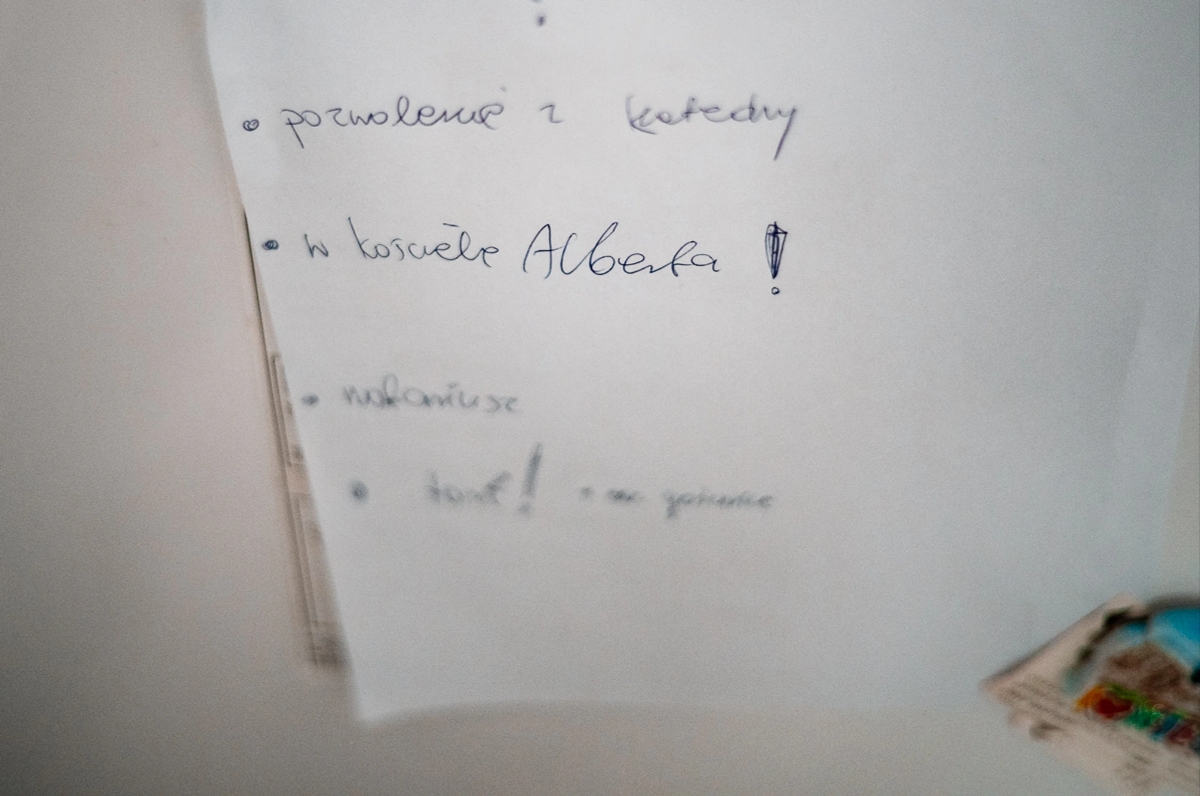 • pozwolenie z katedry
• w kościele Alberta !
• notariusz
• tort!